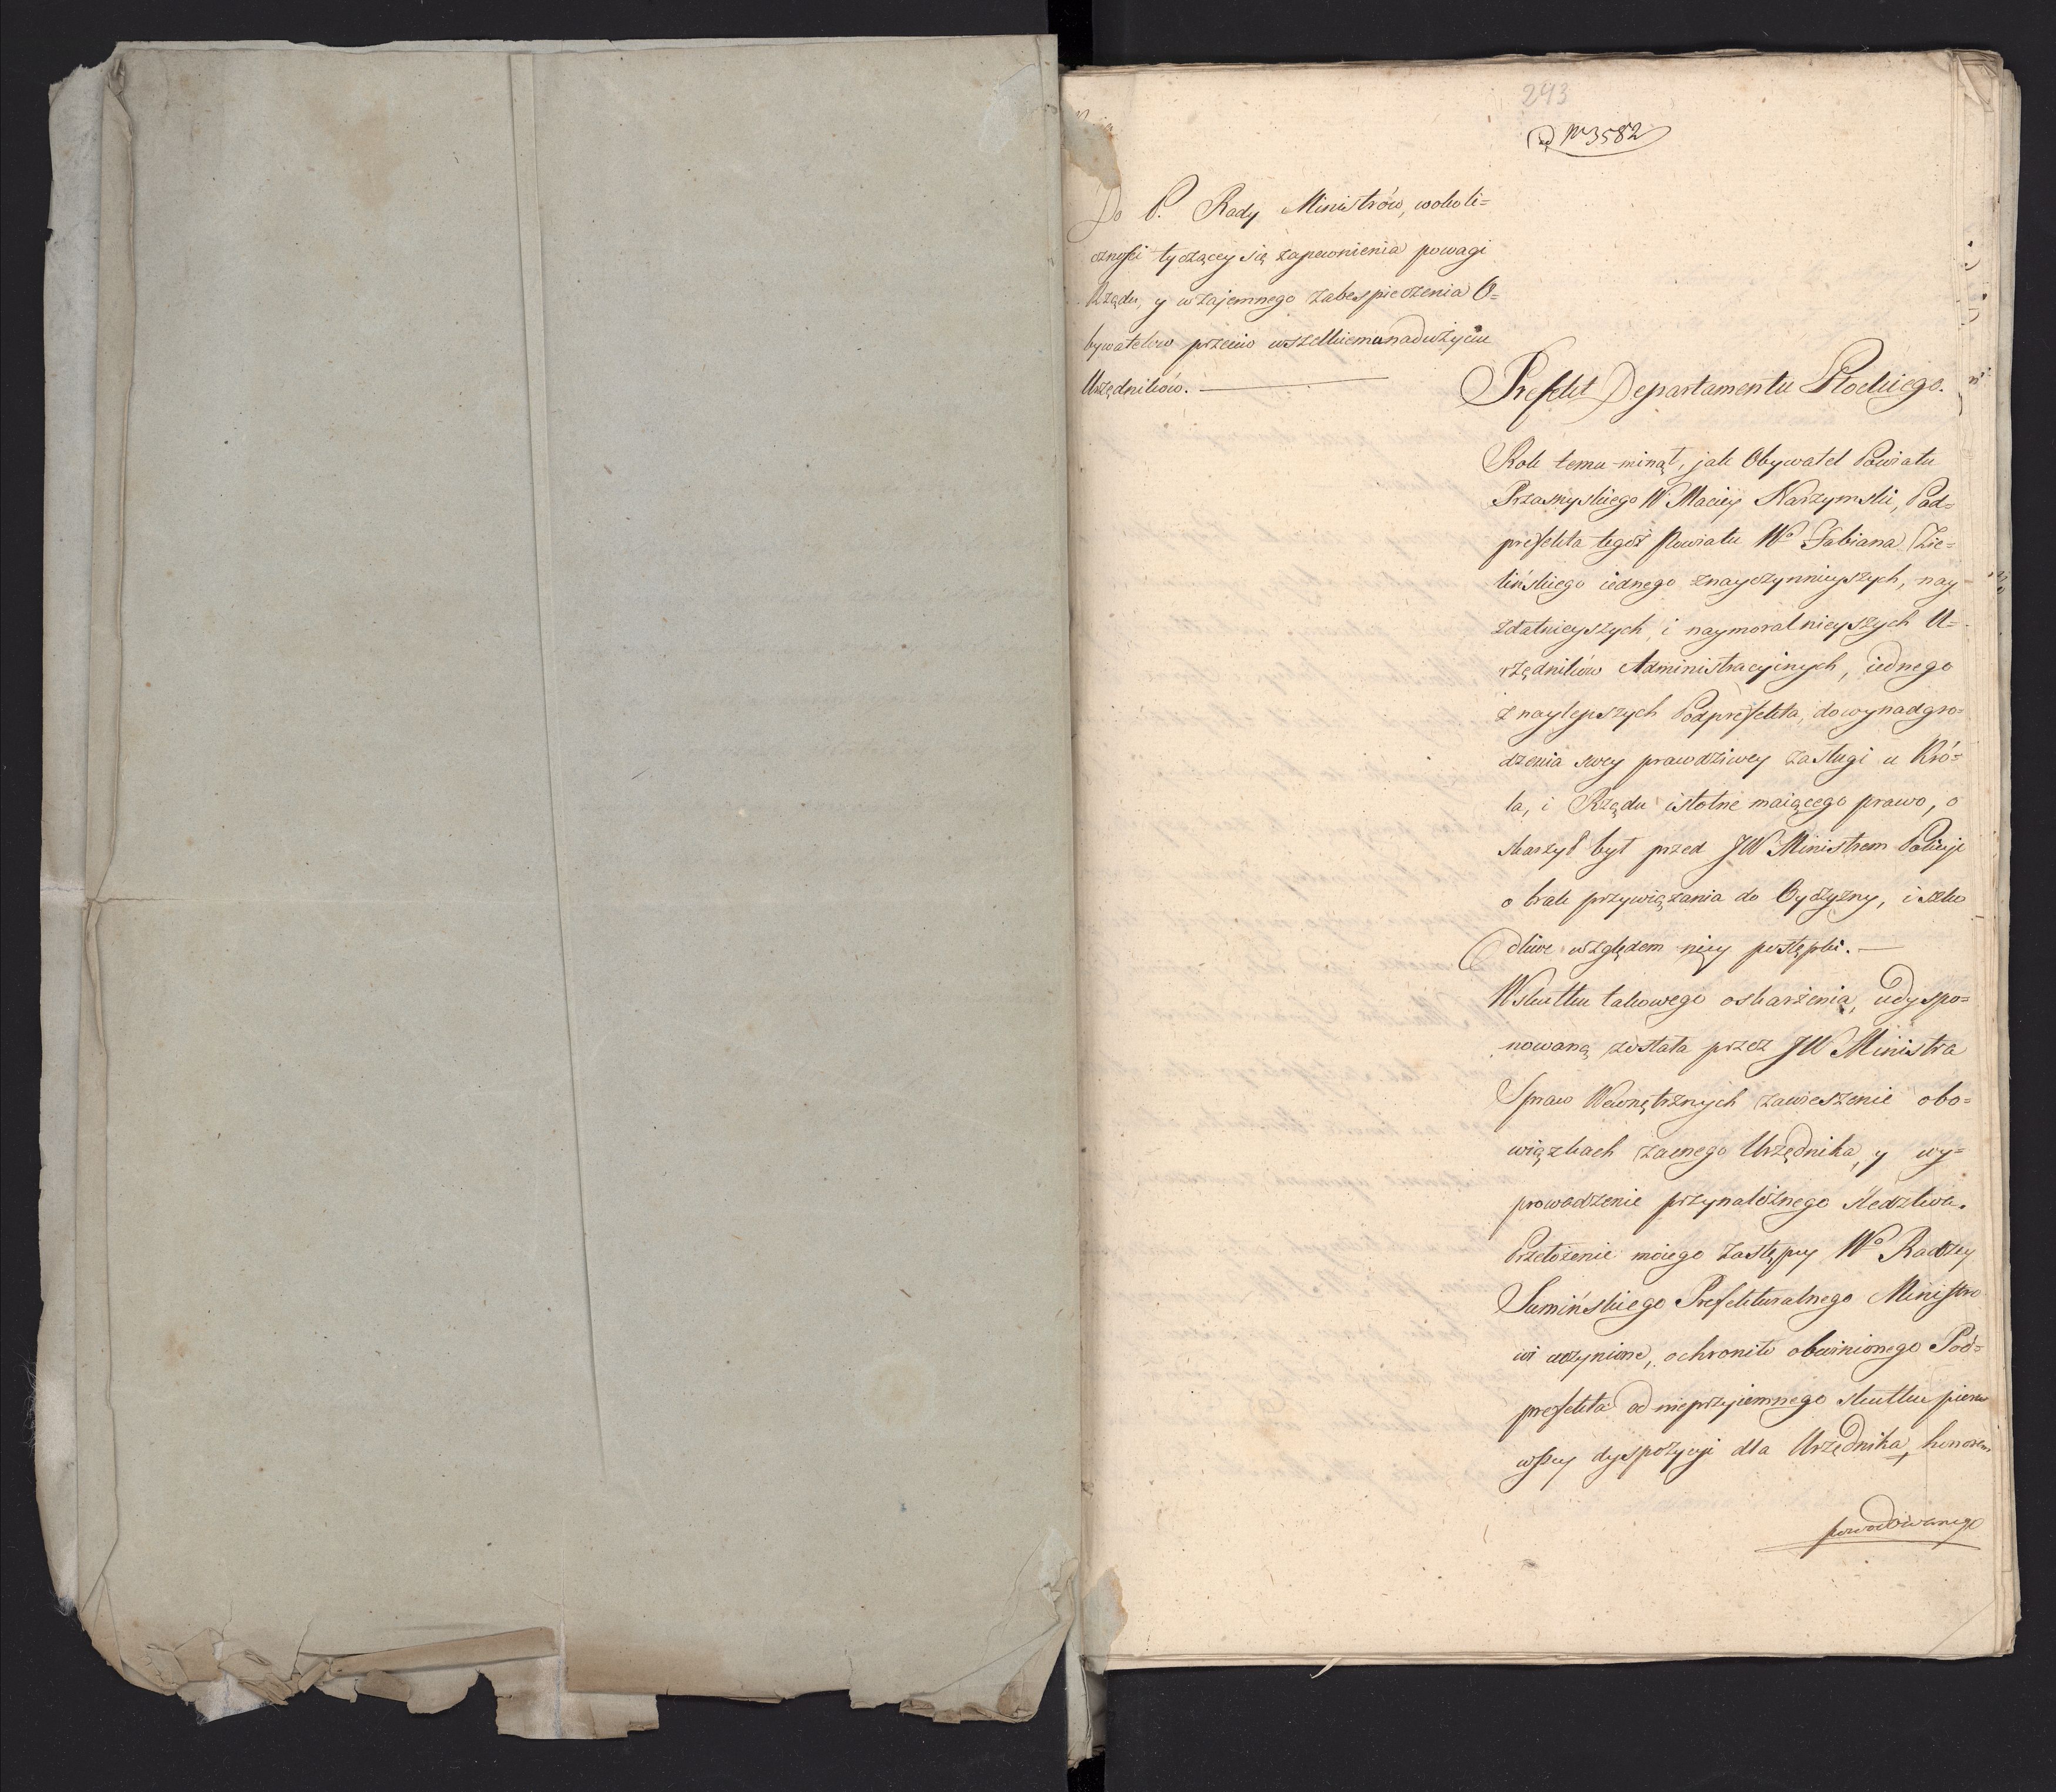 243
ad Nr 3582
Do P. Rady Ministrów, wokoli=
cznosci tyczącey się zapewnienia powagi
Rządu, y wzajemnego zabespieczenia O=
bywatelów przeciw wszelkiemu nadużyciu
Urzędników.
Prefekt Departamentu Płockiego.
Rok temu minął, jak Obywatel Powiatu
Przasnyskiego W Maciey Narzymski, Pod=
prefekta tegoż Powiatu Wo Fabiana Zie=
lińskiego iednego znayczynnieyszych, nay
zdatnieyszych, i naymoralnieyszych U=
rzędników Administracyinych, iednego
z naylepszych Podprefekta, do wynadgro=
dzenia swey prawdziwey zasługi u Kró=
la, i Rządu istotne maiącego prawo, o
skarzył był przed JW Ministrem Policyi
o brak przywiązania do Oyczyzny, i szko
dliwe względem niey postępki.
Wskutku takowego oskarżenia, udyspo=
nowaną została przez JW Ministra
Spraw Wewnętrznych zawieszenie obo=
wiązkach zacnego Urzędnika, y wy=
prowadzenie przynależnego sledztwa.
Przełożenie moiego Zastępcy Wo Radzcy
Sumińskiego Prefekturalnego Ministro
wi uczynione, ochroniło obwinionego Pod=
prefekta od nieprzyiemnego skutku pierw
wszey dyspozycyi dla Urzędnika, honorem
powodowanego